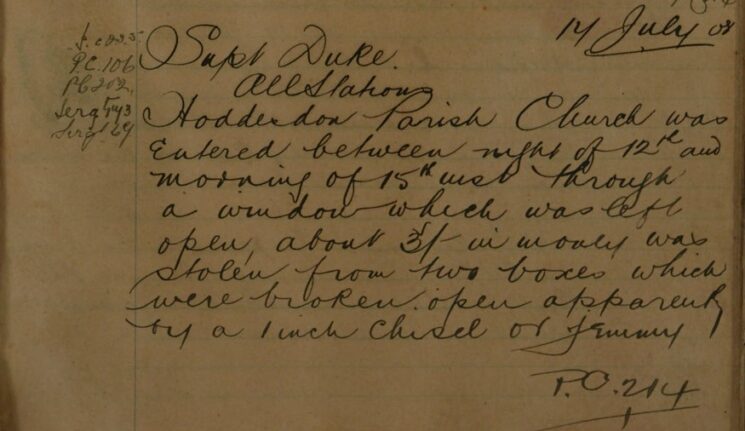 14 July 08
Supt Duke.
All Stations
Hoddesdon Parish Church was
Entered between night of 12th and
morning of 15th inst through
a window which was left
open, about 3/- in money was
stolen from two boxes which
were broken open apparently
by a 1 inch chisel or Jemmy
P.C. 214
P.C. 106
PC 202
Sergt 69